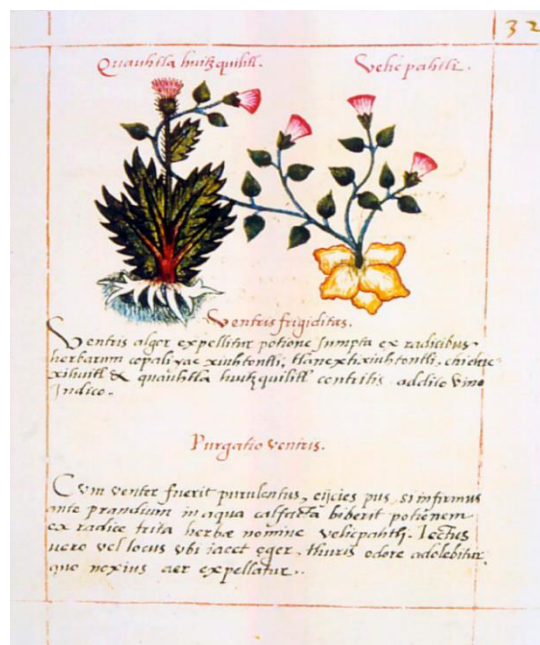 32
Quauhtla huitzquilitl.
Vehi pahtli.
Ventris frigiditas.
Ventris algor expellitur potione sumpta ex radicibus
herbarum copaliyac xiuhtontli, tlanextixiuhtontli, chichic
xihuitl & quauhtla huitzquilitl contritis addito vino
Indico.
Purgatio ventris.
Cum venter fuerit purulentus, eijcies pus, si infirmus
ante prandium in aqua calfacta biberit potionem
ex radice trita herbæ nomine vehipahtli. Lectus
uero vel locus vbi iacet eger, thuris odore adolebitur,
quo nexius aer expellatur..